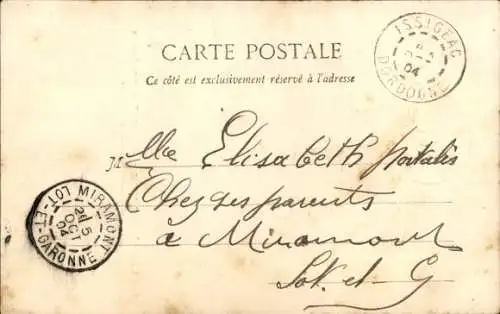 CARTE POSTALE
Ce côté est exclusivement réservé à l'adresse
ISSIGEAC
DORDOGNE
04
Mlle Elisabeth Portalis
Chez ses parents
à Miramont
Lot et G
MIRAMONT
LOT-ET-GARONNE
5
OCT
04